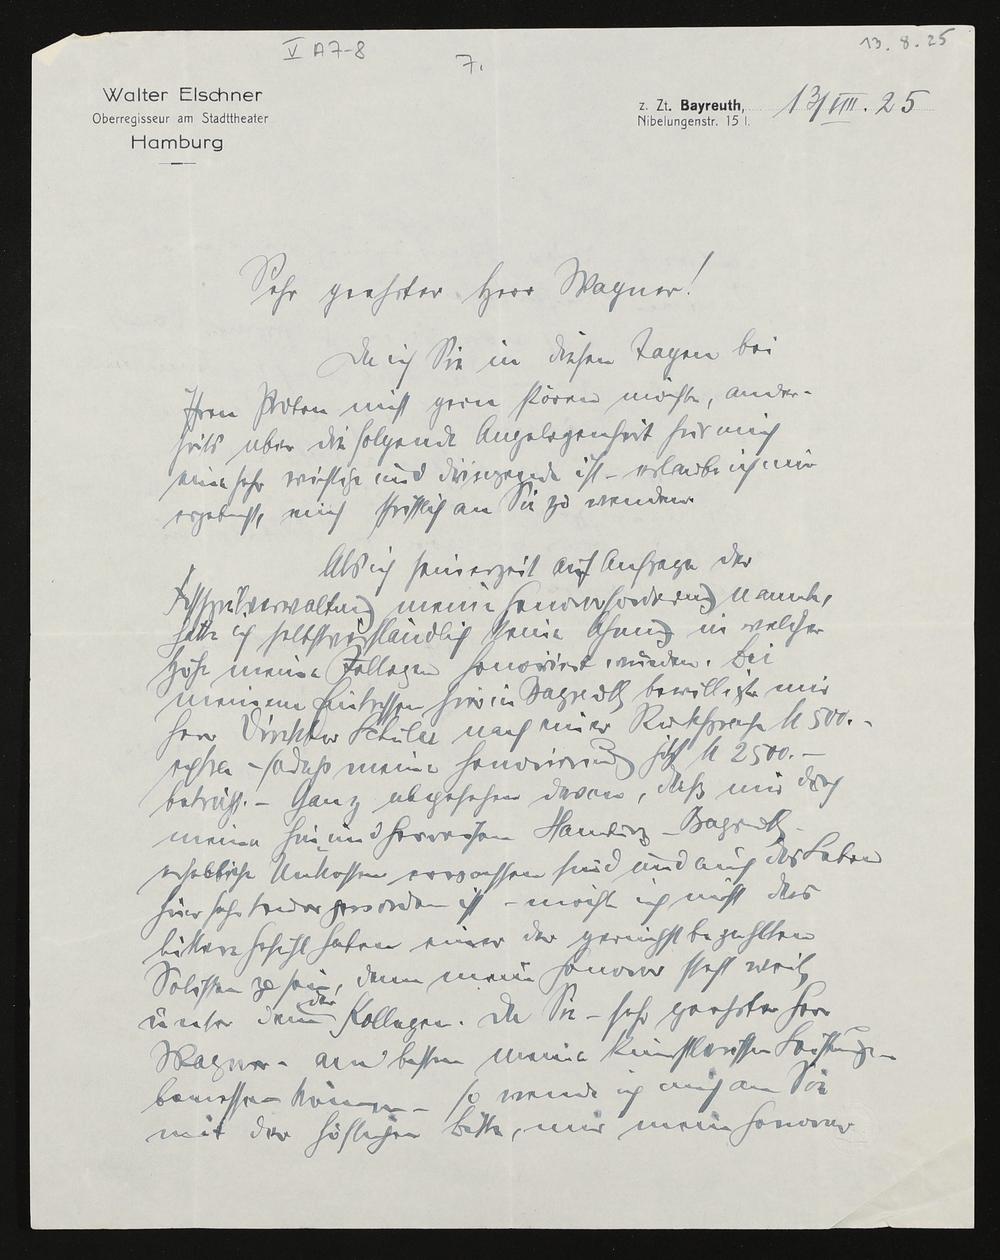 V A7-8
7.
13. 8. 25
Walter Elschner
Oberregisseur am Stadttheater
Hamburg
z. Zt. Bayreuth, 13/VIII. 25
Nibelungenstr. 15 I.
Sehr geehrter Herr Wagner!
Da ich Sie in diesen Tagen bei
Ihren Proben nicht gern stören möchte, ander-
seits aber die folgende Angelegenheit für mich
eine sehr wichtige und dringende ist - erlaube ich mir
ergebenst, mich schriftlich an Sie zu wenden.
Als ich seinerzeit auf Anfrage der
Festspielverwaltung meine Honorarforderung nannte,
hatte ich selbstverständlich keine Ahnung in welcher
Höhe meine Kollegen honoriert würden. Bei
meinem Eintreffen hier in Bayreuth bewilligte mir
Herr Direktor Schuler nach einer Rücksprache M 500.-
extra - sodass meine Honorierung jetzt M 2500.-
beträgt. - Ganz abgesehen davon, daß mir durch
meine Hin und Herreisen Hamburg - Bayreuth
erhebliche Unkosten erwachsen sind und auch das Leben
hier sehr teuer geworden ist - möchte ich nicht das
bittere Gefühl haben einer der geringst bezahlten
Solisten zu sein, denn mein Honorar steht weit
unter dem der Kollegen. Da Sie - sehr geehrter Herr
Wagner - am besten meine künstlerischen Leistungen
bemessen können - so wende ich mich an Sie
mit der höflichen Bitte, mir mein Honorar